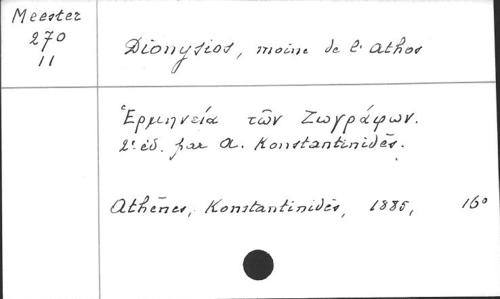 Meester
270
11
Dionysios, moine de l'Athos
Ἑρμηνεία τῶν Ζωγράφων.
2e éd. par A. Konstantinidès.
Athènes, Konstantinidès, 1885, 16°